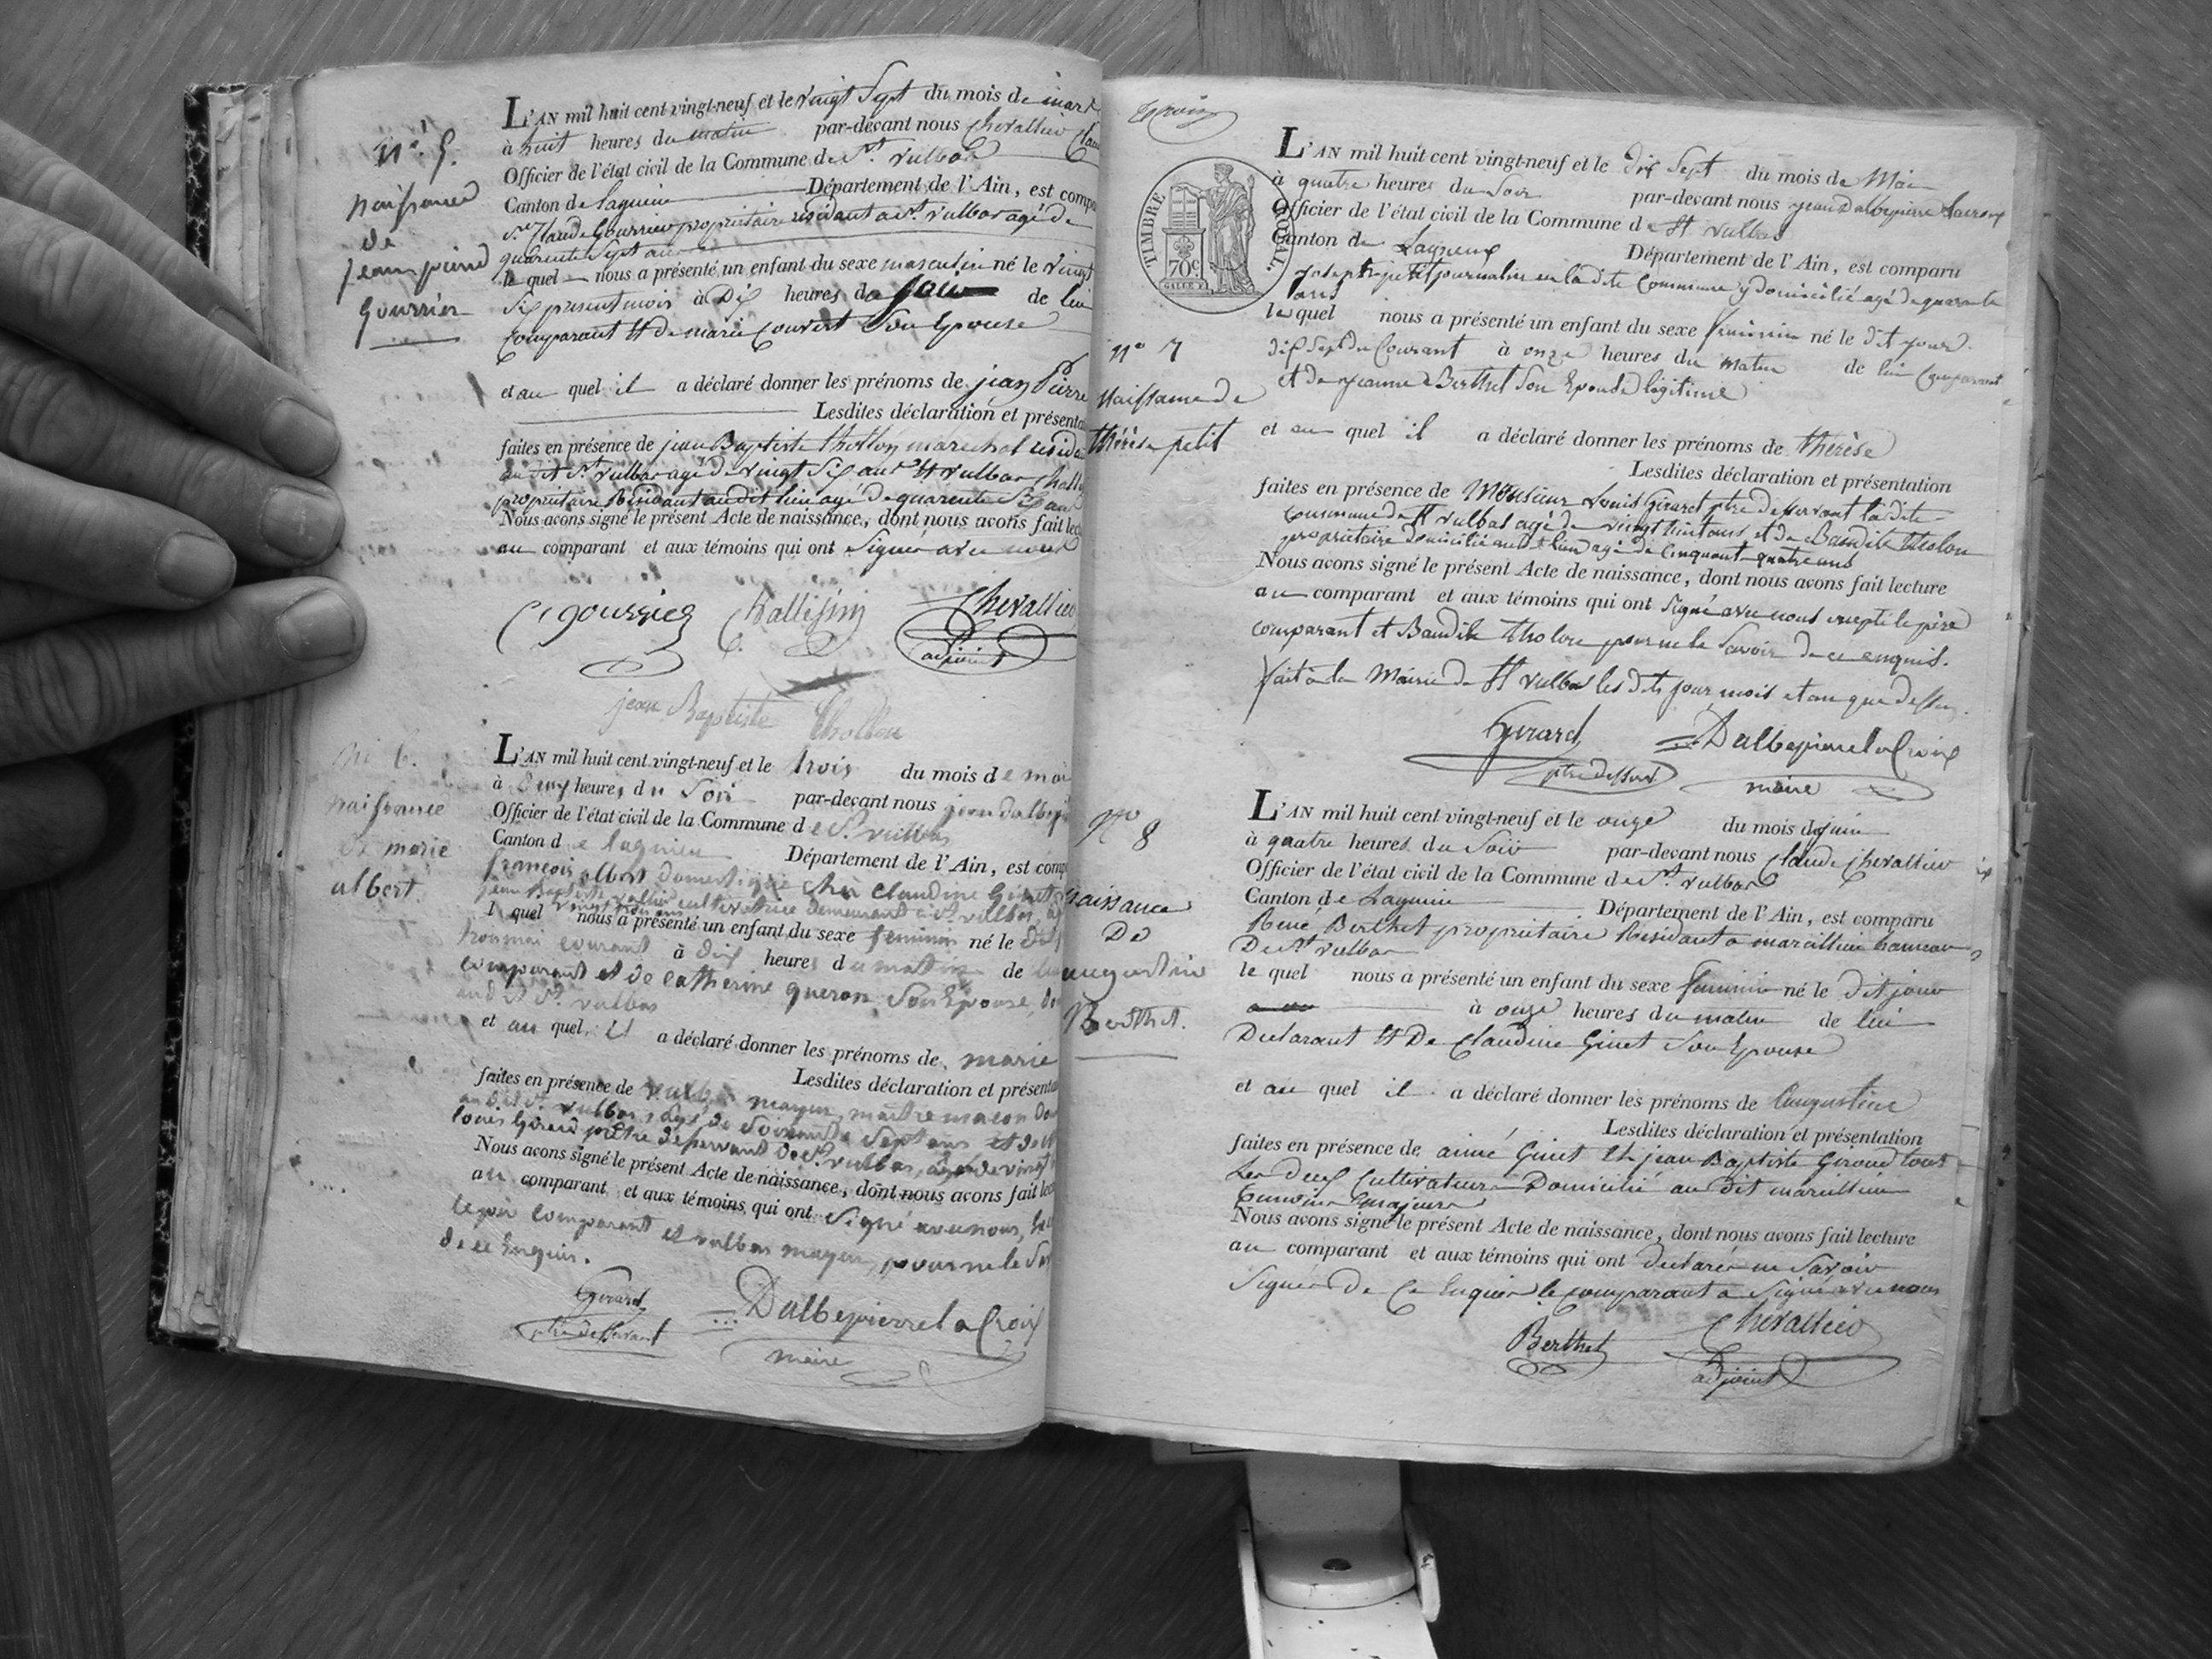 N.° 5.
naissance
de
jean pierre
Gourrier
L'AN mil huit cent vingt-neuf et le vingt Sept du mois de mars
à huit heures du matin par-devant nous Chevallier Clau
Officier de l'état civil de la Commune de St. Vulbas
Canton de lagnieu Département de l'Ain, est compa
Sr. Claude Gourrier propriétaire résidant a St. Vulbas agé de
quarente Sept ans
le quel nous a présenté un enfant du sexe masculin né le Vingt
Six présent mois à Dix heures du de lui
comparant et de marie Couvert Son Epouse
et au quel il a déclaré donner les prénoms de jean Pierre
Lesdites déclaration et présenta
faites en présence de jean Baptiste thollon marechal resida
au dit St. Vulbas agé de vingt Six ans et Vulbas
propriétaire Résidant audit lieu agé de quarente Six ans
Nous avons signé le présent Acte de naissance, dont nous avons fait lec
au comparant et aux témoins qui ont Signer avec nous
Chevallier
adjoint
jean Baptiste thollon
N. 6.
naissance
de marie
albert
L'AN mil huit cent vingt-neuf et le trois du mois de mai
à Deux heures du Soir par-devant nous jean dalbepi
Officier de l'état civil de la Commune de St. vulbas
Canton de lagnieu Département de l'Ain, est comp
françois albert Domestique chez claudine Ginet
cultivatrice demeurant a St. vulbas,
l quel nous a présenté un enfant du sexe feminin né le
trois mai courant à dix heures du matin de lui
comparant et de catherine queron Son Epouse, de
audit St. vulbas
et au quel il a déclaré donner les prénoms de marie
Lesdites déclaration et présenta
faites en présence de vulbas mayeu, maitre macon
au dit St. vulbas, agé de Soixante Sept ans et de
louis Girard prêtre desservant de St. vulbas, âgé de vingt
Nous avons signé le présent Acte de naissance, dont nous avons fait lec
au comparant et aux témoins qui ont Signé avec nous,
le père comparant et vulbas mayeu, pour ne le
de ce Enquis.
Girard
ptre desservant
Dalbepierre la Croix
maire
TIMBRE ROYAL.
70c
N° 7
Naissance de
thérèse petit
L'AN mil huit cent vingt-neuf et le dix Sept du mois de Mai
à quatre heures du Soir par-devant nous jean Dalbepierre lacroix
Officier de l'état civil de la Commune de St Vulbas
Canton de Lagnieux Département de l'Ain, est comparu
Joseph petit journalier en la dite Commune y domicilié agé de quarante
ans
le quel nous a présenté un enfant du sexe feminin né le dit jour
dix Sept du Courant à onze heures du matin de lui Comparant
et de jeanne Berthet Son Epouse légitime
et au quel il a déclaré donner les prénoms de thérèse
Lesdites déclaration et présentation
faites en présence de Monsieur Louis Girard ptre desservant la dite
commune de St Vulbas agé de vingt huit ans et de Baudile tholon
propriétaire domicilié audit lieu agé de Cinquant quatre ans
Nous avons signé le présent Acte de naissance, dont nous avons fait lecture
au comparant et aux témoins qui ont Signé avec nous excepté le père
comparant et Baudile tholon pour ne le Savoir de ce enquis.
fait à la Mairie de St Vulbas les dits jour, mois et an que dessus.
Girard
ptre desserv.
Dalbepierre la Croix
maire
N° 8
Naissance
De
augustine
Berthet.
L'AN mil huit cent vingt-neuf et le onze du mois de juin
à quatre heures du Soir par-devant nous Claude Chevallier
Officier de l'état civil de la Commune de St. Vulbas
Canton de Lagnieu Département de l'Ain, est comparu
René Berthet propriétaire Résidant a marcillieu hameau
De St. Vulbas
le quel nous a présenté un enfant du sexe feminin né le Dit jour
à onze heures du matin de lui
Declarant et De Claudine Ginet Son Epouse
et au quel il a déclaré donner les prénoms de augustine
Lesdites déclaration et présentation
faites en présence de aimé Ginet et jean Baptiste Giroud tous
Les deux Cultivateurs Domicilié au dit marcillieu
temoins majeurs
Nous avons signé le présent Acte de naissance, dont nous avons fait lecture
au comparant et aux témoins qui ont declarés ne Savoir
Signer De Ce Enquis le comparant a Signé avec nous
Berthet
Chevallier
adjoint